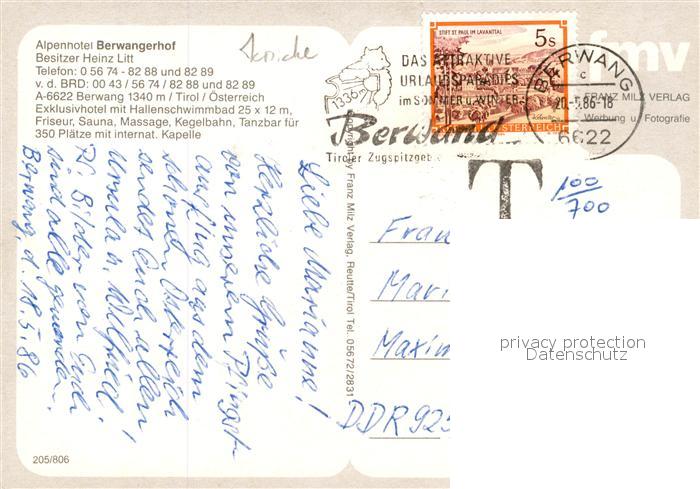 Alpenhotel Berwangerhof
Besitzer Heinz Litt
Telefon: 0 56 74 - 82 88 und 82 89
v. d. BRD: 00 43 / 56 74 / 82 88 und 82 89
A-6622 Berwang 1340 m / Tirol / Österreich
Exklusivhotel mit Hallenschwimmbad 25 x 12 m,
Friseur, Sauna, Massage, Kegelbahn, Tanzbar für
350 Plätze mit internat. Kapelle
STIFT ST. PAUL IM LAVANTTAL
5s
REPUBLIK ÖSTERREICH
1336 m
DAS ATTRAKTIVE
URLAUBSPARADIES
im SOMMER u. WINTER
Berwang
Tiroler Zugspitzgeb
BERWANG
c
20.-5.86-18
6622
fmv
FRANZ MILZ VERLAG
Werbung u. Fotografie
T
100
700
Liebe Marianne!
Herzliche Grüße
von unserem Pfingst-
ausflug aus dem
schönen Österreich
sendet Euch allen
Ursula u. Wilfried!
D. Bilder von Euch
sind alle geworden.
Berwang, d. 18.5.86
Copyright by Franz Milz Verlag, Reutte/Tirol Tel. 05672/2831
Frau
Mari
Maxim
DDR 925
privacy protection
Datenschutz
205/806